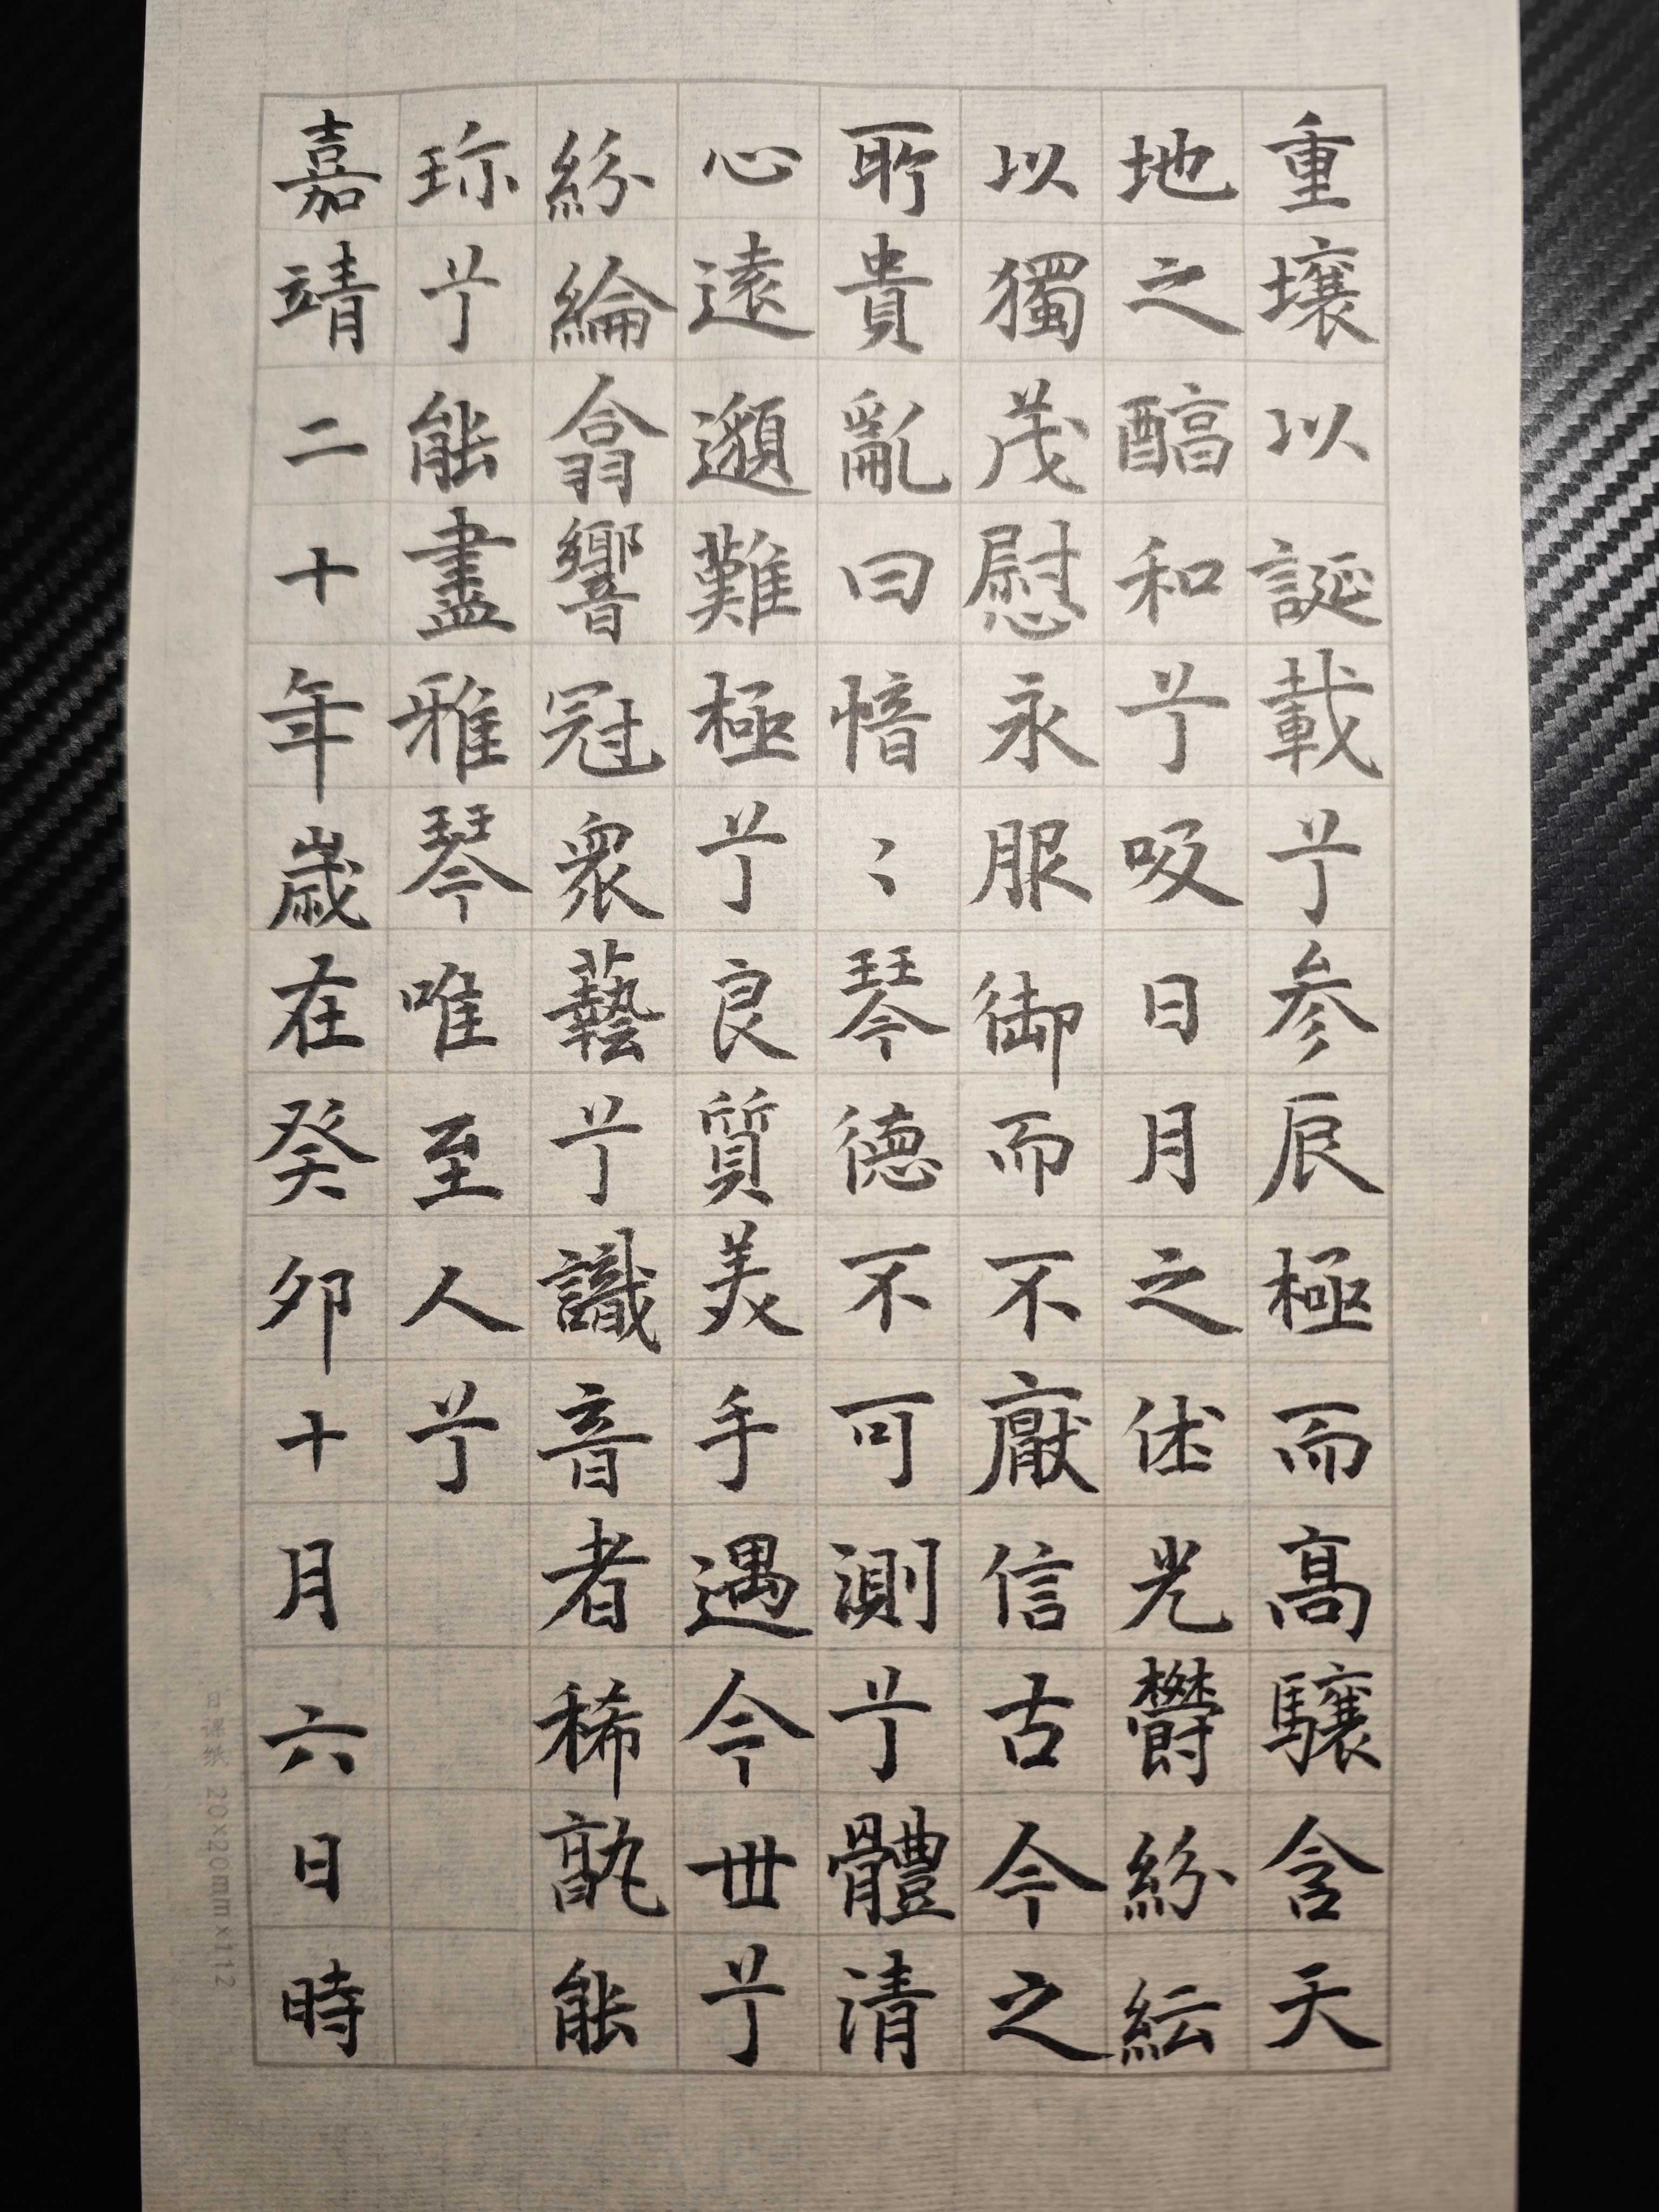 重壤以誕載兮参辰極而高驤含天
地之醇和兮吸日月之休光鬱紛紜
以獨茂慰永服御而不厭信古今之
所貴亂曰愔〻琴德不可測兮體清
心遠邈難極兮良質美手遇今世兮
紛綸翕響冠衆藝兮識音者稀孰能
珍兮能盡雅琴唯至人兮
嘉靖二十年歲在癸卯十月六日時
20×20mm×112